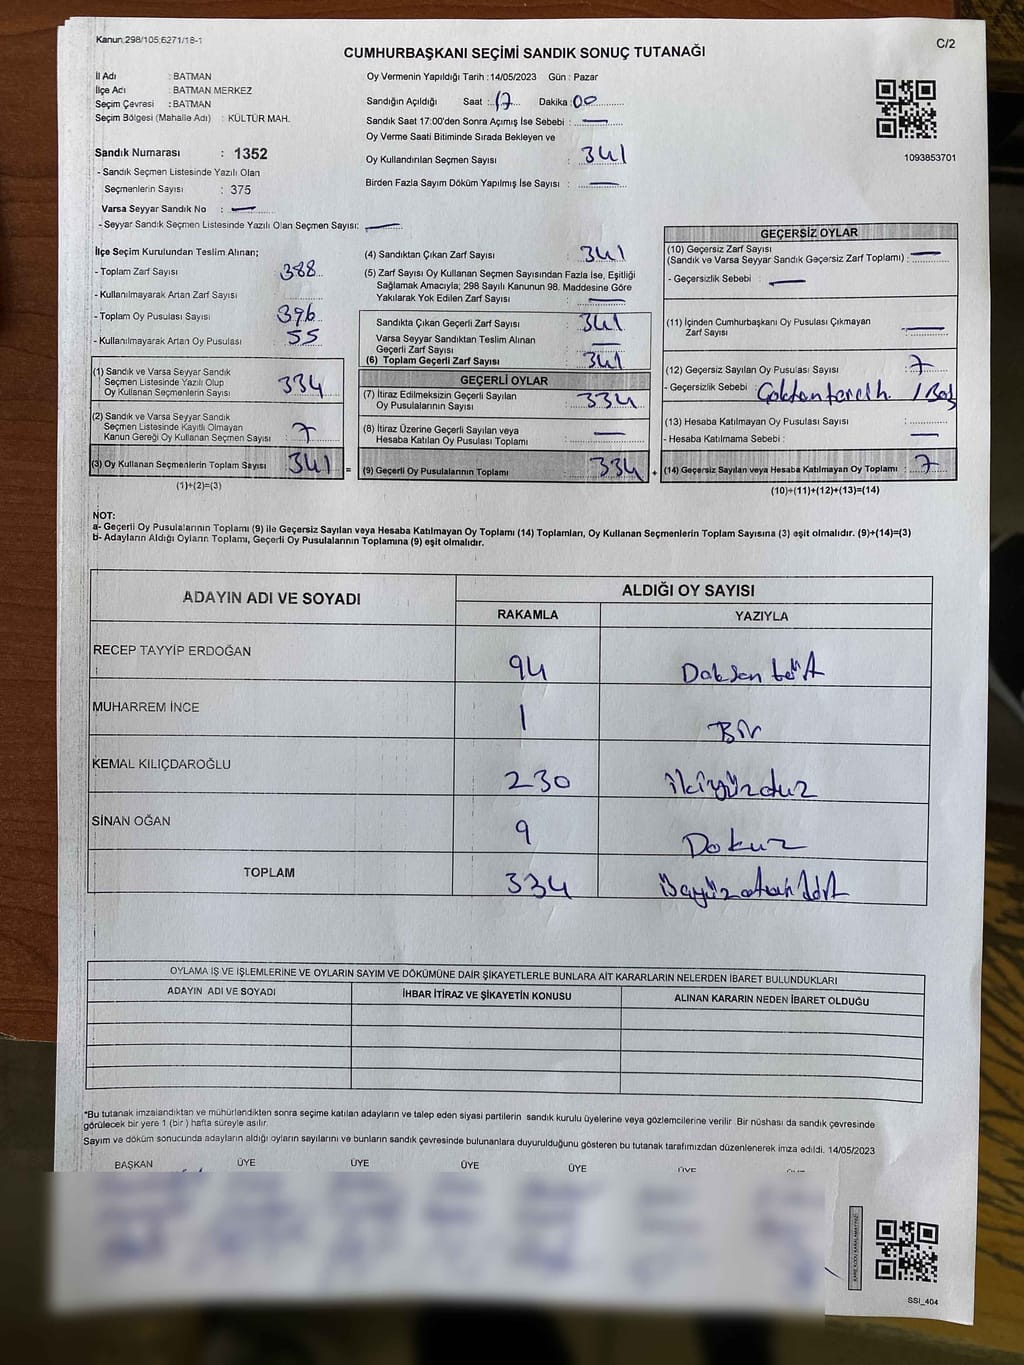 Kanun:298/105,6271/18-1
C/2
CUMHURBAŞKANI SEÇİMİ SANDIK SONUÇ TUTANAĞI
İl Adı : BATMAN
İlçe Adı : BATMAN MERKEZ
Seçim Çevresi : BATMAN
Seçim Bölgesi (Mahalle Adı) : KÜLTÜR MAH.
Oy Vermenin Yapıldığı Tarih : 14/05/2023 Gün : Pazar
Sandığın Açıldığı Saat : 17 Dakika : 00
Sandık Saat 17:00'den Sonra Açımış İse Sebebi : —
Oy Verme Saati Bitiminde Sırada Bekleyen ve
Oy Kullandırılan Seçmen Sayısı : 341
Birden Fazla Sayım Döküm Yapılmış İse Sayısı : —
1093853701
Sandık Numarası : 1352
- Sandık Seçmen Listesinde Yazılı Olan
Seçmenlerin Sayısı : 375
Varsa Seyyar Sandık No : —
- Seyyar Sandık Seçmen Listesinde Yazılı Olan Seçmen Sayısı: —
İlçe Seçim Kurulundan Teslim Alınan;
- Toplam Zarf Sayısı : 388
- Kullanılmayarak Artan Zarf Sayısı :
- Toplam Oy Pusulası Sayısı : 396
- Kullanılmayarak Artan Oy Pusulası : 55
(1) Sandık ve Varsa Seyyar Sandık
Seçmen Listesinde Yazılı Olup
Oy Kullanan Seçmenlerin Sayısı : 334
(2) Sandık ve Varsa Seyyar Sandık
Seçmen Listesinde Kayıtlı Olmayan
Kanun Gereği Oy Kullanan Seçmen Sayısı : 7
(3) Oy Kullanan Seçmenlerin Toplam Sayısı : 341 =
(1)+(2)=(3)
(4) Sandıktan Çıkan Zarf Sayısı : 341
(5) Zarf Sayısı Oy Kullanan Seçmen Sayısından Fazla İse, Eşitliği
Sağlamak Amacıyla; 298 Sayılı Kanunun 98. Maddesine Göre
Yakılarak Yok Edilen Zarf Sayısı : —
Sandıkta Çıkan Geçerli Zarf Sayısı : 341
Varsa Seyyar Sandıktan Teslim Alınan
Geçerli Zarf Sayısı : —
(6) Toplam Geçerli Zarf Sayısı : 341
GEÇERLİ OYLAR
(7) İtiraz Edilmeksizin Geçerli Sayılan
Oy Pusulalarının Sayısı : 334
(8) İtiraz Üzerine Geçerli Sayılan veya
Hesaba Katılan Oy Pusulası Toplamı : —
(9) Geçerli Oy Pusulalarının Toplamı : 334 +
GEÇERSİZ OYLAR
(10) Geçersiz Zarf Sayısı
(Sandık ve Varsa Seyyar Sandık Geçersiz Zarf Toplamı) : —
- Geçersizlik Sebebi : —
(11) İçinden Cumhurbaşkanı Oy Pusulası Çıkmayan
Zarf Sayısı : —
(12) Geçersiz Sayılan Oy Pusulası Sayısı : 7
- Geçersizlik Sebebi : / Boş
(13) Hesaba Katılmayan Oy Pusulası Sayısı :
- Hesaba Katılmama Sebebi : —
(14) Geçersiz Sayılan veya Hesaba Katılmayan Oy Toplamı : 7
(10)+(11)+(12)+(13)=(14)
NOT:
a- Geçerli Oy Pusulalarının Toplamı (9) ile Geçersiz Sayılan veya Hesaba Katılmayan Oy Toplamı (14) Toplamları, Oy Kullanan Seçmenlerin Toplam Sayısına (3) eşit olmalıdır. (9)+(14)=(3)
b- Adayların Aldığı Oyların Toplamı, Geçerli Oy Pusulalarının Toplamına (9) eşit olmalıdır.
ADAYIN ADI VE SOYADI
ALDIĞI OY SAYISI
RAKAMLA YAZIYLA
RECEP TAYYİP ERDOĞAN 94 Doksan dört
MUHARREM İNCE 1 Bir
KEMAL KILIÇDAROĞLU 230 ikiyüzotuz
SİNAN OĞAN 9 Dokuz
TOPLAM 334 üçyüzotuz dört
OYLAMA İŞ VE İŞLEMLERİNE VE OYLARIN SAYIM VE DÖKÜMÜNE DAİR ŞİKAYETLERLE BUNLARA AİT KARARLARIN NELERDEN İBARET BULUNDUKLARI
ADAYIN ADI VE SOYADI İHBAR İTİRAZ VE ŞİKAYETİN KONUSU ALINAN KARARIN NEDEN İBARET OLDUĞU
*Bu tutanak imzalandıktan ve mühürlendikten sonra seçime katılan adayların ve talep eden siyasi partilerin sandık kurulu üyelerine veya gözlemcilerine verilir. Bir nüshası da sandık çevresinde
görülecek bir yere 1 (bir) hafta süreyle asılır.
Sayım ve döküm sonucunda adayların aldığı oyların sayılarını ve bunların sandık çevresinde bulunanlara duyurulduğunu gösteren bu tutanak tarafımızdan düzenlenerek imza edildi. 14/05/2023
BAŞKAN ÜYE ÜYE ÜYE ÜYE ÜYE
KARE KODU KARALAMAYINIZ
SSİ_404